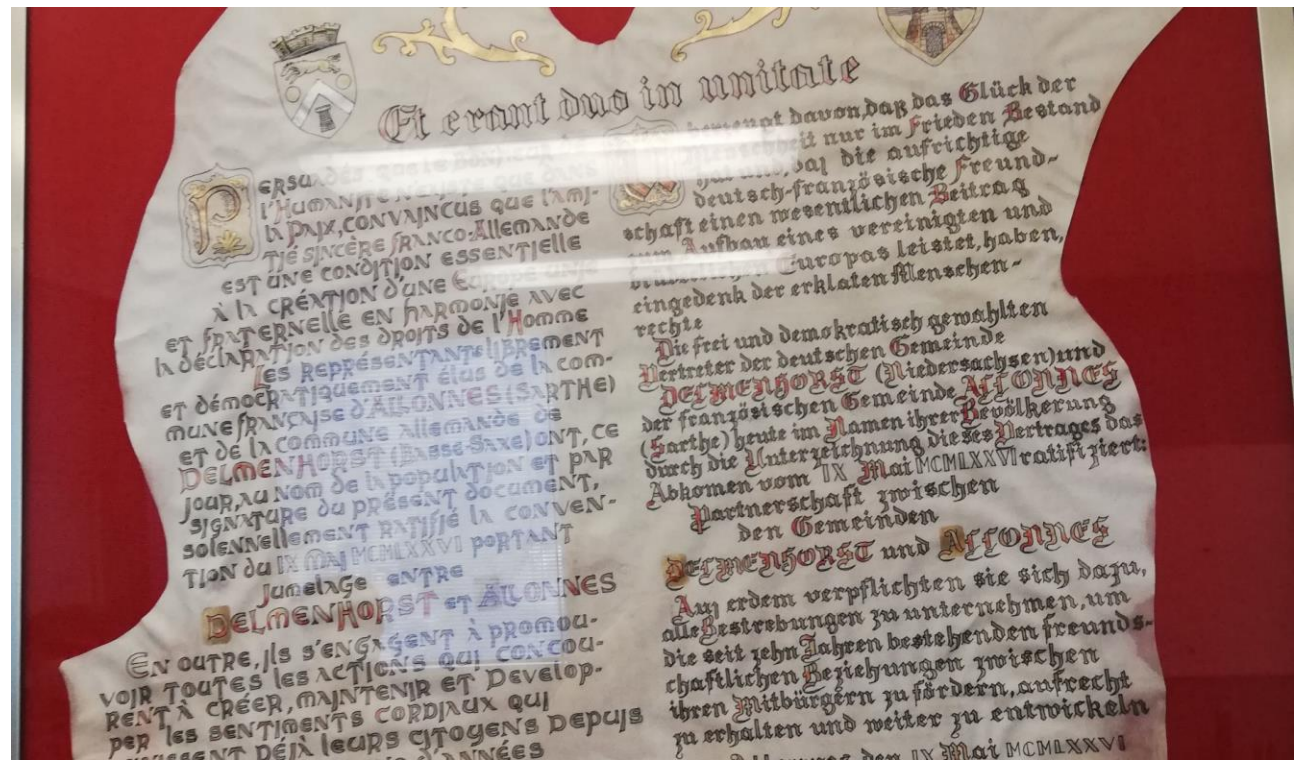 Et erant duo in unitate
PERSUADÉS, QUE LE BONHEUR DE
l'HUMANITÉ N'EXISTE QUE DANS
lA PAIX, CONVAINCUS QUE l'AMI-
TIÉ SINCÈRE FRANCO-AllEMANDE
EST UNE CONDITION ESSENTIELLE
À lA CRÉATION D'UNE EUROPE UNIE
ET FRATERNELLE EN HARMONIE AVEC
lA DÉCLARATION DES DROITS DE l'HOMME
LES REPRÉSENTANTS lIBREMENT
ET DÉMOCRATIQUEMENT ÉlUS DE lA COM-
MUNE FRANÇAISE D'ALLONNES (SARTHE)
ET DE lA COMMUNE AllEMANDE DE
DELMENHORST (BASSE-SAXE) ONT, CE
JOUR, AU NOM DE lA POPULATION ET PAR
SIGNATURE DU PRÉSENT DOCUMENT,
SOlENNEllEMENT RATIFIÉ lA CONVEN-
TION DU IX MAI MCMLXXVI PORTANT
JUMElAGE ENTRE
DELMENHORST ET ALLONNES
EN OUTRE, IlS S'ENGAGENT À PROMOU-
VOIR TOUTES lES ACTIONS QUI CONCOU-
RENT À CRÉER, MAINTENIR ET DEVElOP-
PER lES SENTIMENTS CORDIAUX QUI
DÉJÀ lEURS CITOYENS DEPUIS
D'ANNÉES
davon, daß das Glück der
nur im Frieden Bestand
hat und, daß die aufrichtige
deutsch-französische Freund-
schaft einen wesentlichen Beitrag
zum Aufbau eines vereinigten und
brüderlichen Europas leistet, haben,
eingedenk der erklaten Menschen-
rechte
Die frei und demokratisch gewahlten
Vertreter der deutschen Gemeinde
DELMENHORST (Niedersachsen) und
der französischen Gemeinde ALLONNES
(Sarthe) heute im Namen ihrer Bevölkerung
durch die Unterzeichnung dieses Vertrages das
Abkomen vom IX Mai MCMLXXVI ratifiziert:
Partnerschaft zwischen
den Gemeinden
DELMENHORST und ALLONNES
Außerdem verpflichten sie sich dazu,
alle Bestrebungen zu unternehmen, um
die seit zehn Jahren bestehenden freunds-
chaftlichen Beziehungen zwischen
ihren Mitbürgern zu fördern, aufrecht
zu erhalten und weiter zu entwickeln
den IX Mai MCMLXXVI